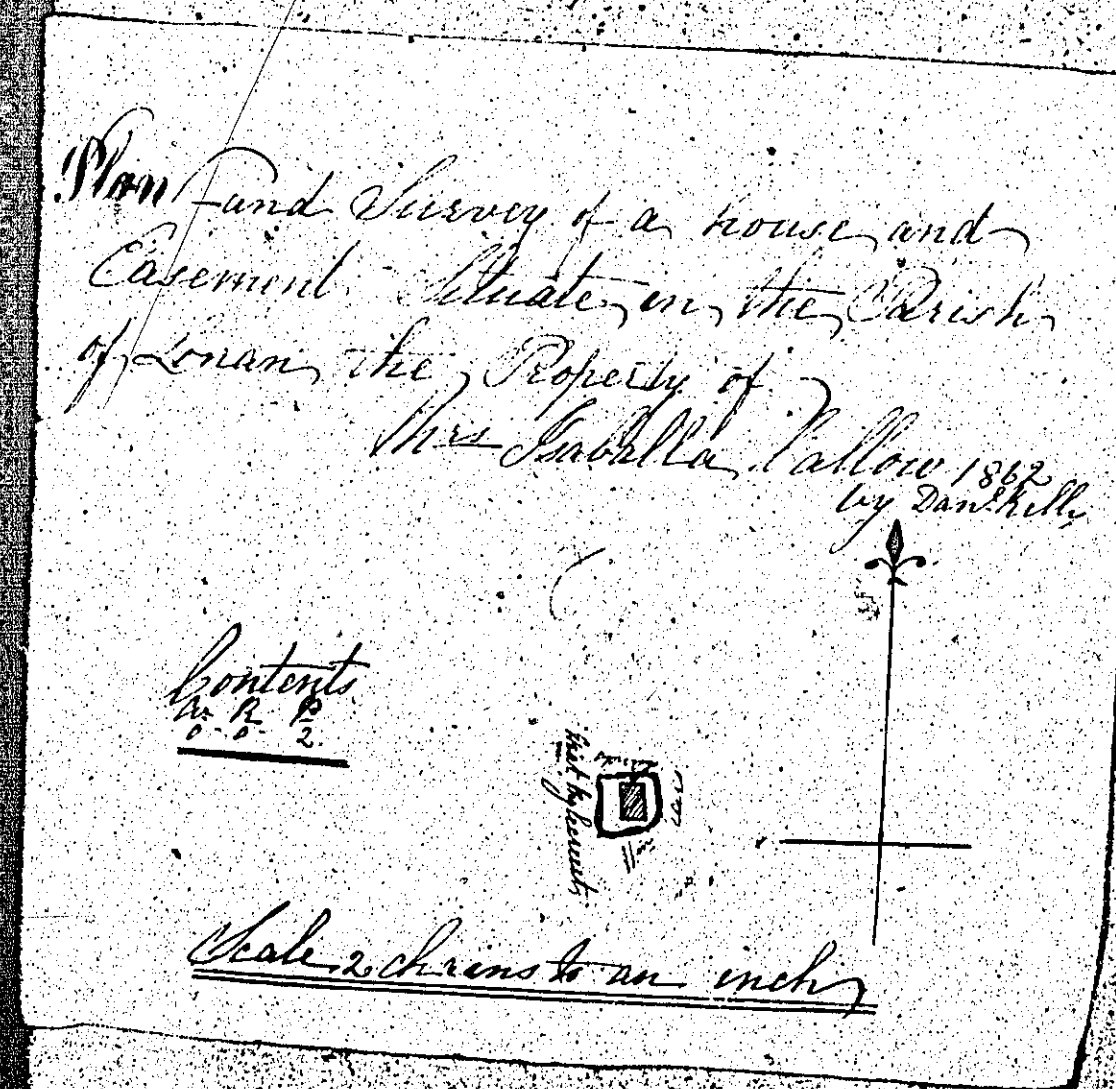 Plan and Survey of a house and
Easement Situate in the Parish
of Lonan the Property of
Mrs Isaballa Callow 1862
by Danl. Kelly
Contents
A. R. P.
0 - 0 - 2.
Scale 2 chains to an inch